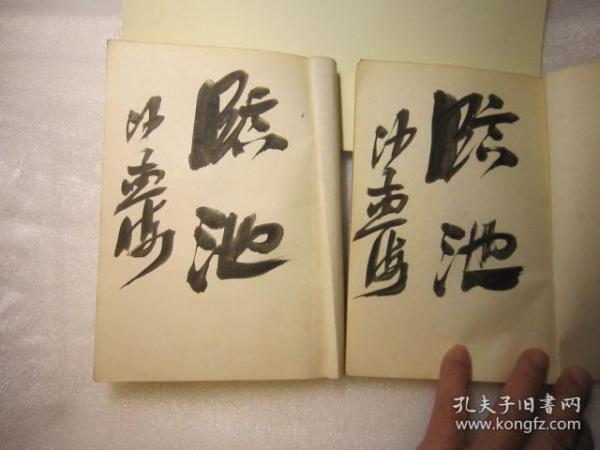 临池
沙孟海
临池
沙孟海
孔夫子旧书网
www.kongfz.com